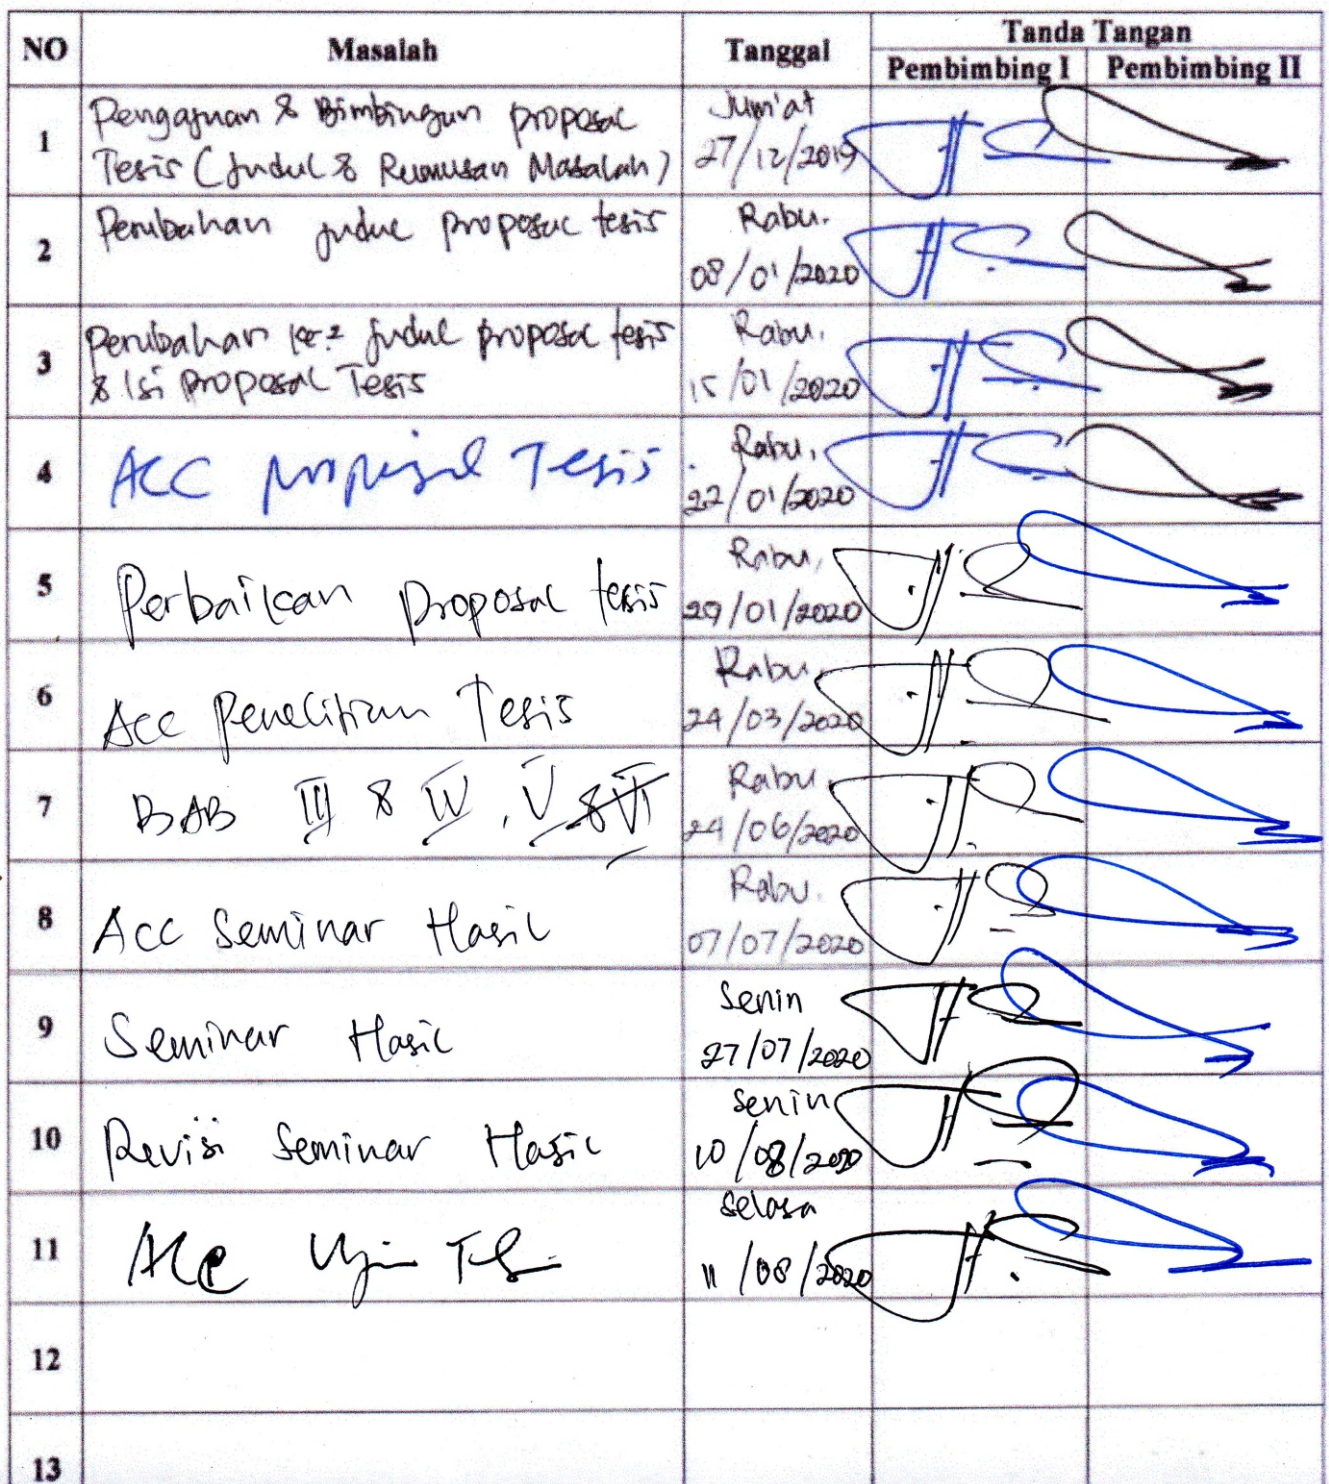 NO Masalah Tanggal Tanda Tangan
Pembimbing I Pembimbing II
1 Pengajuan & Bimbingan proposal Jum'at
Tesis (Judul & Rumusan Masalah) 27/12/2019
2 Perubahan judul proposal tesis Rabu.
08/01/2020
3 Perubahan ke-2 judul proposal tesis Rabu,
& Isi proposal Tesis 15/01/2020
4 ACC proposal Tesis Rabu,
22/01/2020
5 Perbaikan proposal tesis Rabu,
29/01/2020
6 Acc Penelitian Tesis Rabu,
24/03/2020
7 BAB III & IV, V & VI Rabu,
24/06/2020
8 Acc Seminar Hasil Rabu.
07/07/2020
9 Seminar Hasil Senin
27/07/2020
10 Revisi Seminar Hasil Senin
10/08/2020
11 Acc Ujian Selasa
11/08/2020
12
13